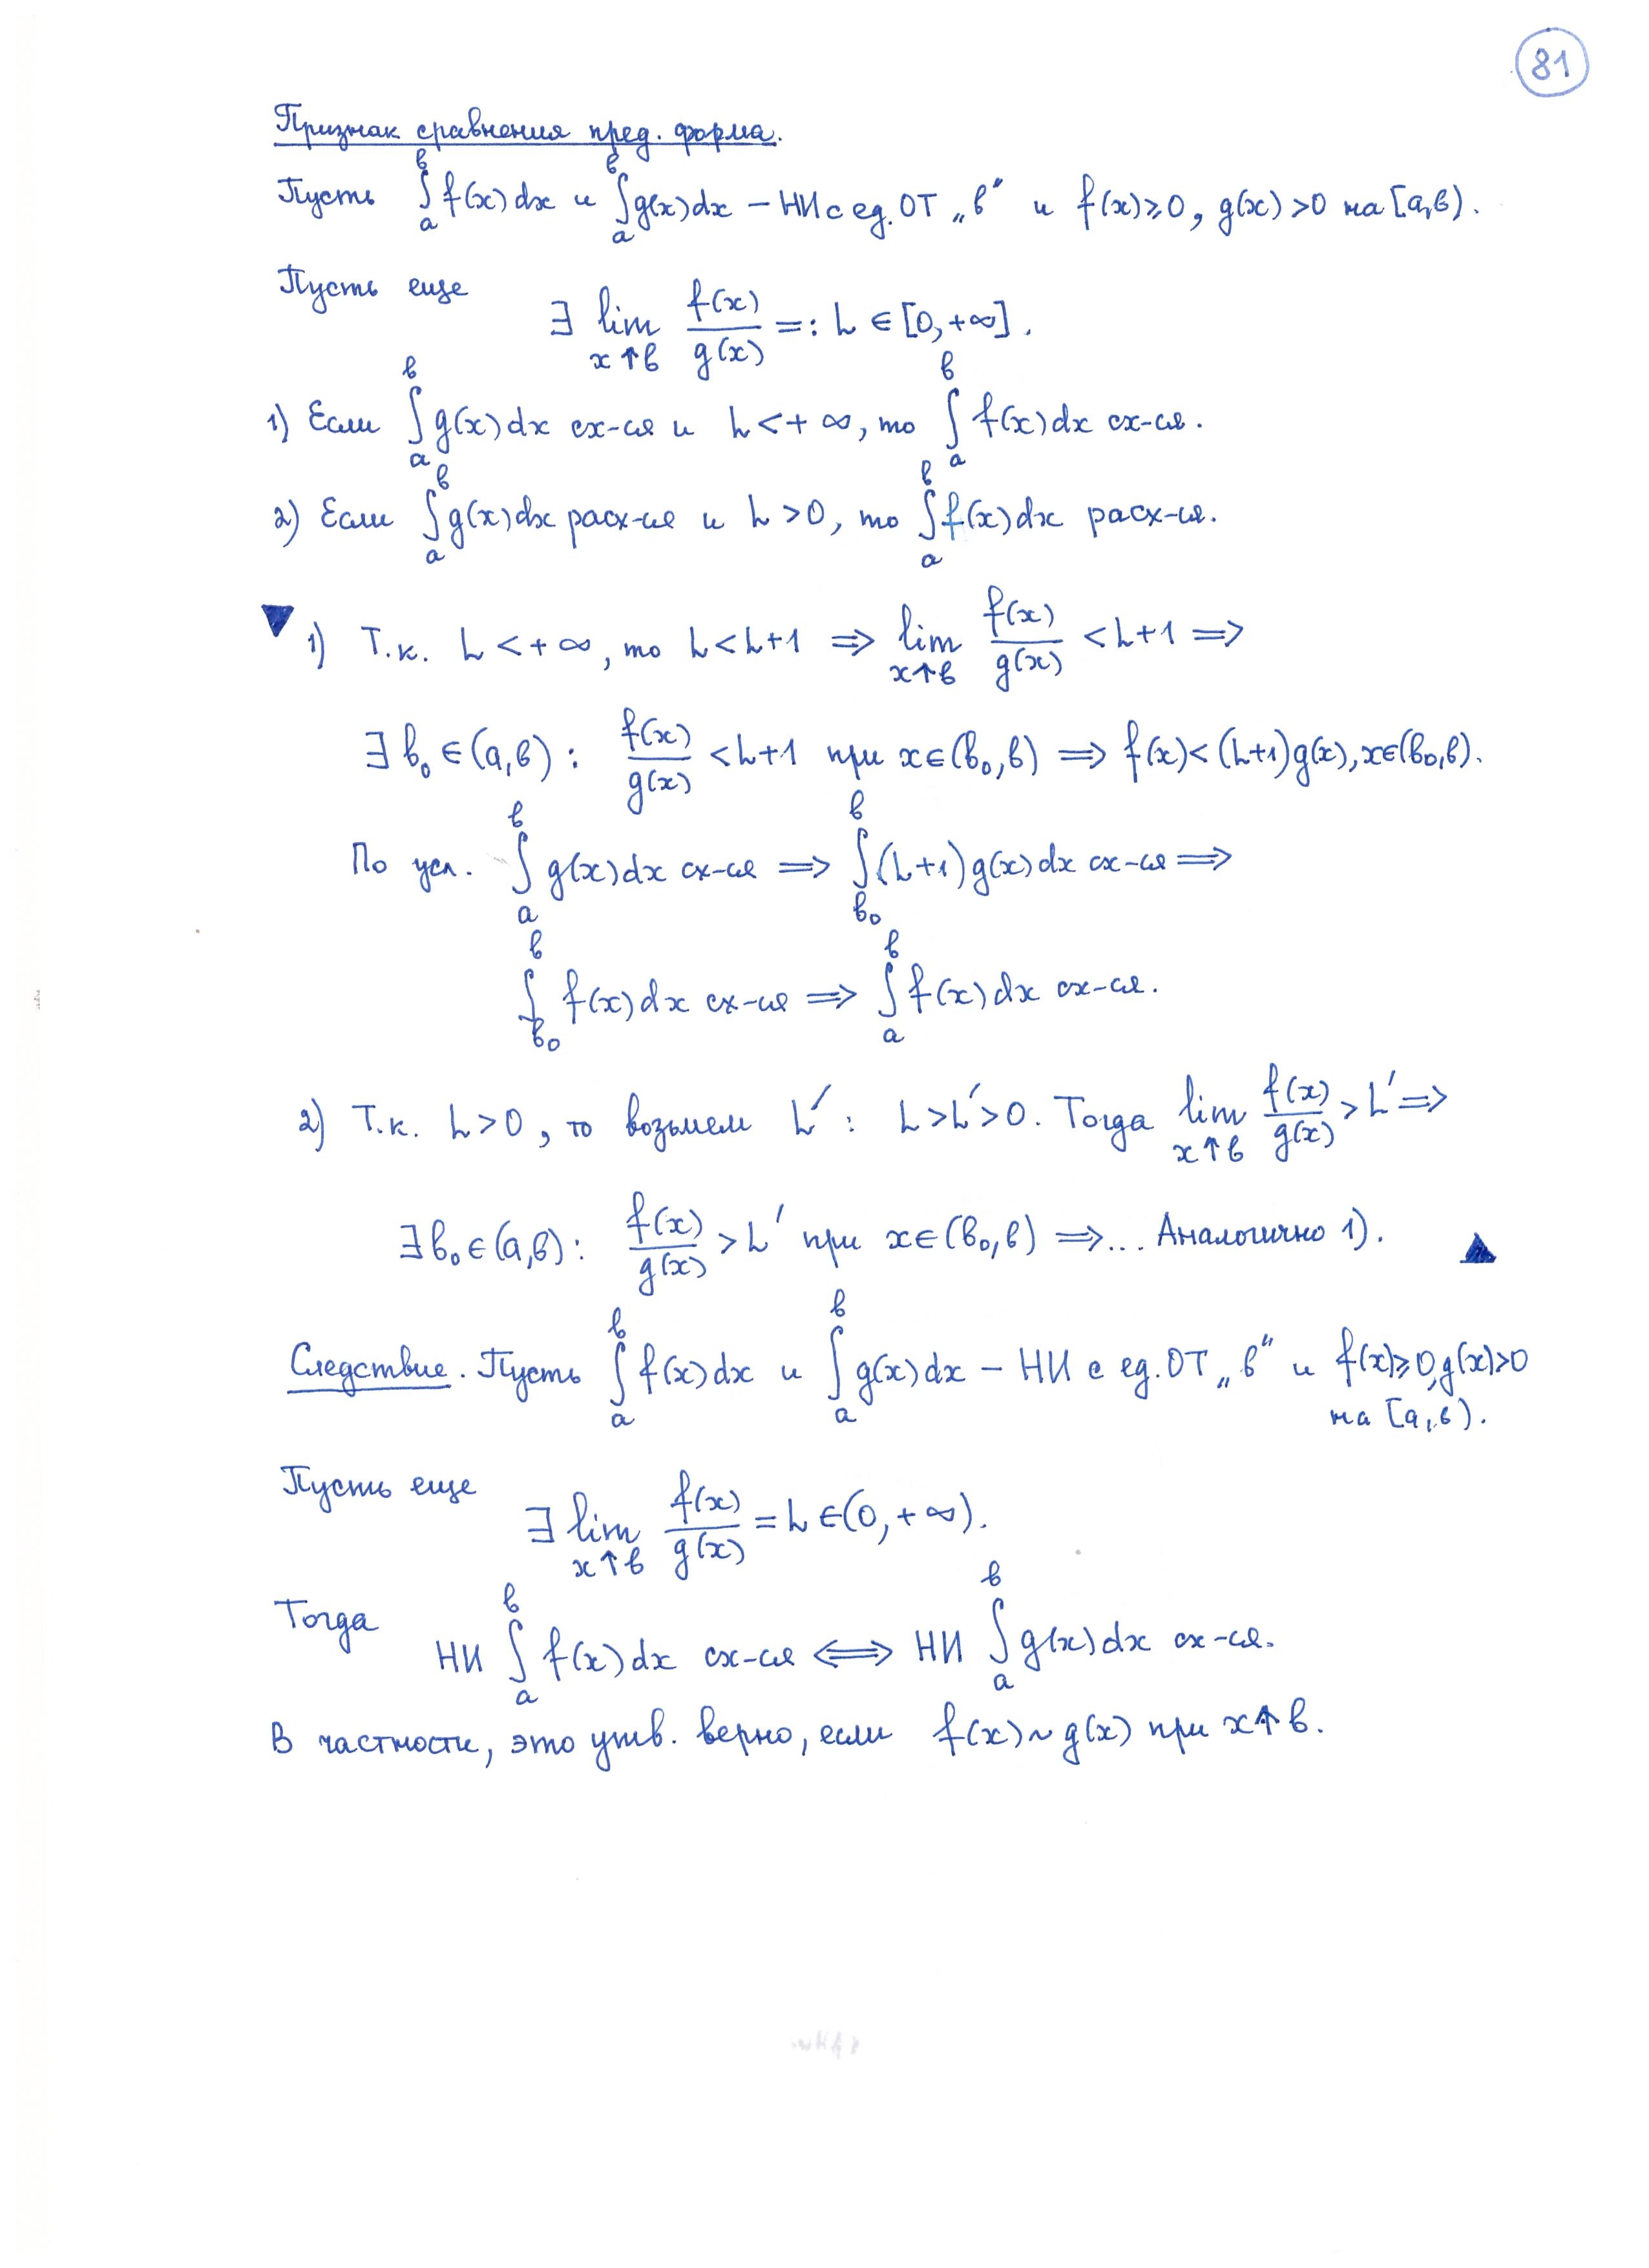 81
Признак сравнения пред. форма.
Пусть ∫_a^b f(x)dx и ∫_a^b g(x)dx – НИ с ед. ОТ „b“ и f(x)⩾0, g(x)>0 на [a,b).
Пусть еще
∃ lim_{x↑b} f(x)/g(x) =: L ∈ [0,+∞].
1) Если ∫_a^b g(x)dx сх-ся и L<+∞, то ∫_a^b f(x)dx сх-ся.
2) Если ∫_a^b g(x)dx расх-ся и L>0, то ∫_a^b f(x)dx расх-ся.
▼ 1) Т.к. L<+∞, то L<L+1 ⇒ lim_{x↑b} f(x)/g(x) <L+1 ⇒
∃ b₀∈(a,b): f(x)/g(x) <L+1 при x∈(b₀,b) ⇒ f(x)<(L+1)g(x), x∈(b₀,b).
По усл. ∫_a^b g(x)dx сх-ся ⇒ ∫_{b₀}^b (L+1)g(x)dx сх-ся ⇒
∫_{b₀}^b f(x)dx сх-ся ⇒ ∫_a^b f(x)dx сх-ся.
2) Т.к. L>0, то возьмем L′: L>L′>0. Тогда lim_{x↑b} f(x)/g(x) >L′ ⇒
∃ b₀∈(a,b): f(x)/g(x) >L′ при x∈(b₀,b) ⇒... Аналогично 1). ▲
Следствие. Пусть ∫_a^b f(x)dx и ∫_a^b g(x)dx – НИ с ед. ОТ „b“ и f(x)⩾0, g(x)>0
на [a,b).
Пусть еще
∃ lim_{x↑b} f(x)/g(x) = L ∈(0,+∞).
Тогда
НИ ∫_a^b f(x)dx сх-ся ⟺ НИ ∫_a^b g(x)dx сх-ся.
В частности, это утв. верно, если f(x)~g(x) при x↑b.